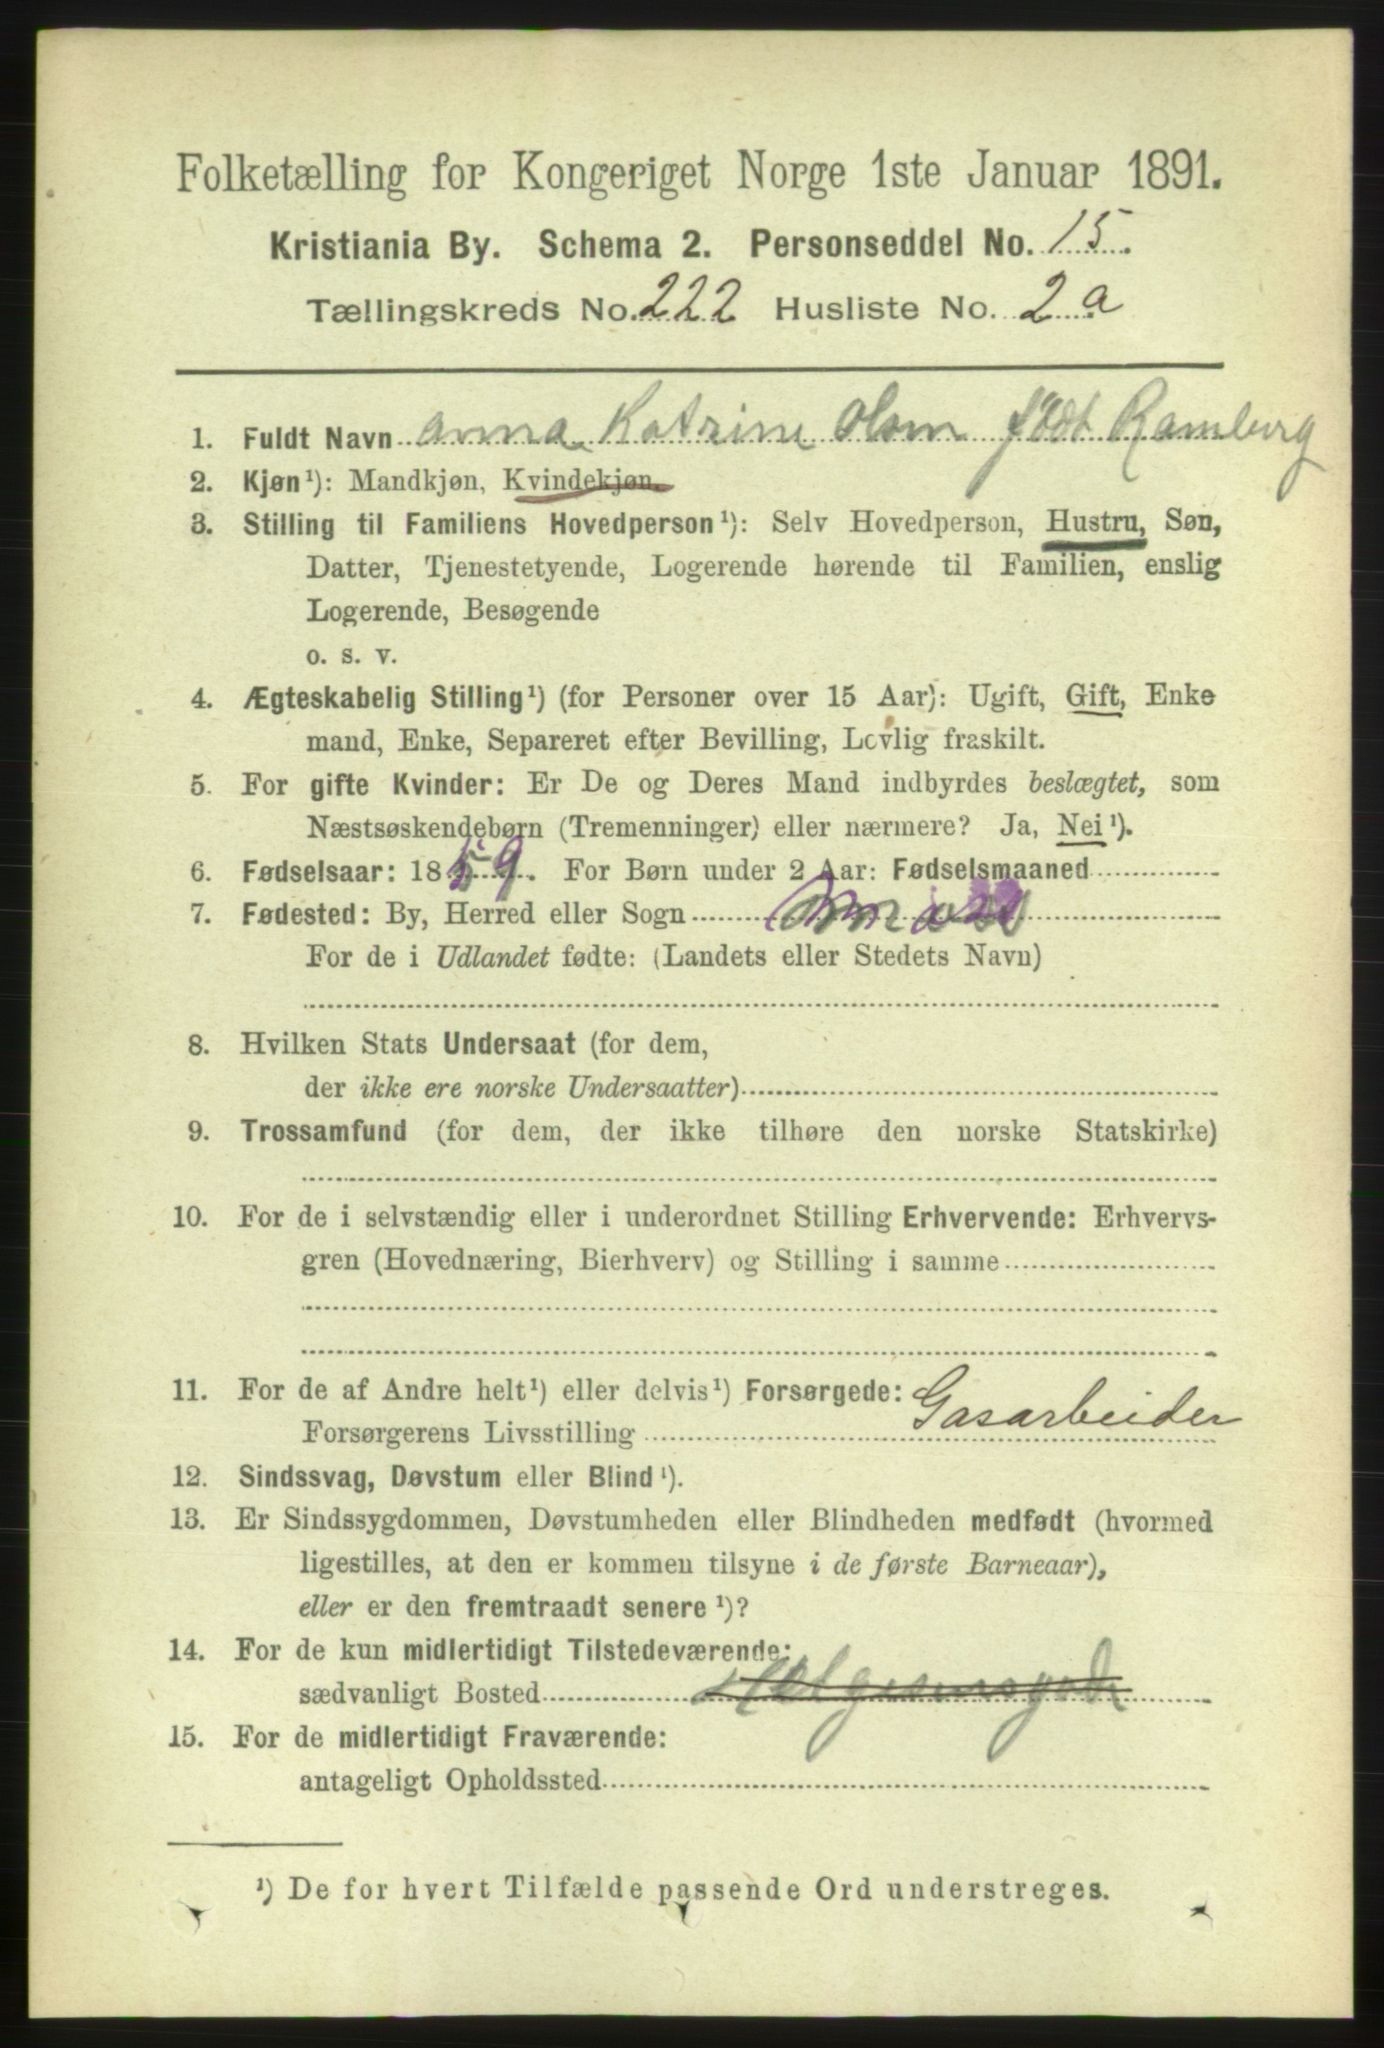 Folketælling for Kongeriget Norge 1ste Januar 1891.
Kristiania By. Schema 2. Personseddel No. 15.
Tællingskreds No. 222 Husliste No. 2 a
1. Fuldt Navn Anna Katrine Olsen født Ramberg
2. Kjøn¹): Mandkjøn, Kvindekjøn.
3. Stilling til Familiens Hovedperson¹): Selv Hovedperson, Hustru, Søn,
Datter, Tjenestetyende, Logerende hørende til Familien, enslig
Logerende, Besøgende
o. s. v.
4. Ægteskabelig Stilling¹) (for Personer over 15 Aar): Ugift, Gift, Enke
mand, Enke, Separeret efter Bevilling, Lovlig fraskilt.
5. For gifte Kvinder: Er De og Deres Mand indbyrdes beslægtet, som
Næstsøskendebørn (Tremenninger) eller nærmere? Ja, Nei¹).
6. Fødselsaar: 1859. For Børn under 2 Aar: Fødselsmaaned
7. Fødested: By, Herred eller Sogn Moss
For de i Udlandet fødte: (Landets eller Stedets Navn)
8. Hvilken Stats Undersaat (for dem,
der ikke ere norske Undersaatter)
9. Trossamfund (for dem, der ikke tilhøre den norske Statskirke)
10. For de i selvstændig eller i underordnet Stilling Erhvervende: Erhvervs-
gren (Hovednæring, Bierhverv) og Stilling i samme
11. For de af Andre helt¹) eller delvis¹) Forsørgede:
Forsørgerens Livsstilling Gasarbeider
12. Sindssvag, Døvstum eller Blind¹).
13. Er Sindssygdommen, Døvstumheden eller Blindheden medfødt (hvormed
ligestilles, at den er kommen tilsyne i de første Barneaar),
eller er den fremtraadt senere¹)?
14. For de kun midlertidigt Tilstedeværende:
sædvanligt Bosted
15. For de midlertidigt Fraværende:
antageligt Opholdssted
¹) De for hvert Tilfælde passende Ord understreges.